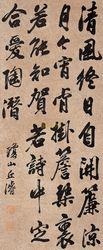 清風終日自開簾涼
月今宵肯掛簷琴裏
若能知賀若詩中定
合愛陶潛
瓊山丘濬